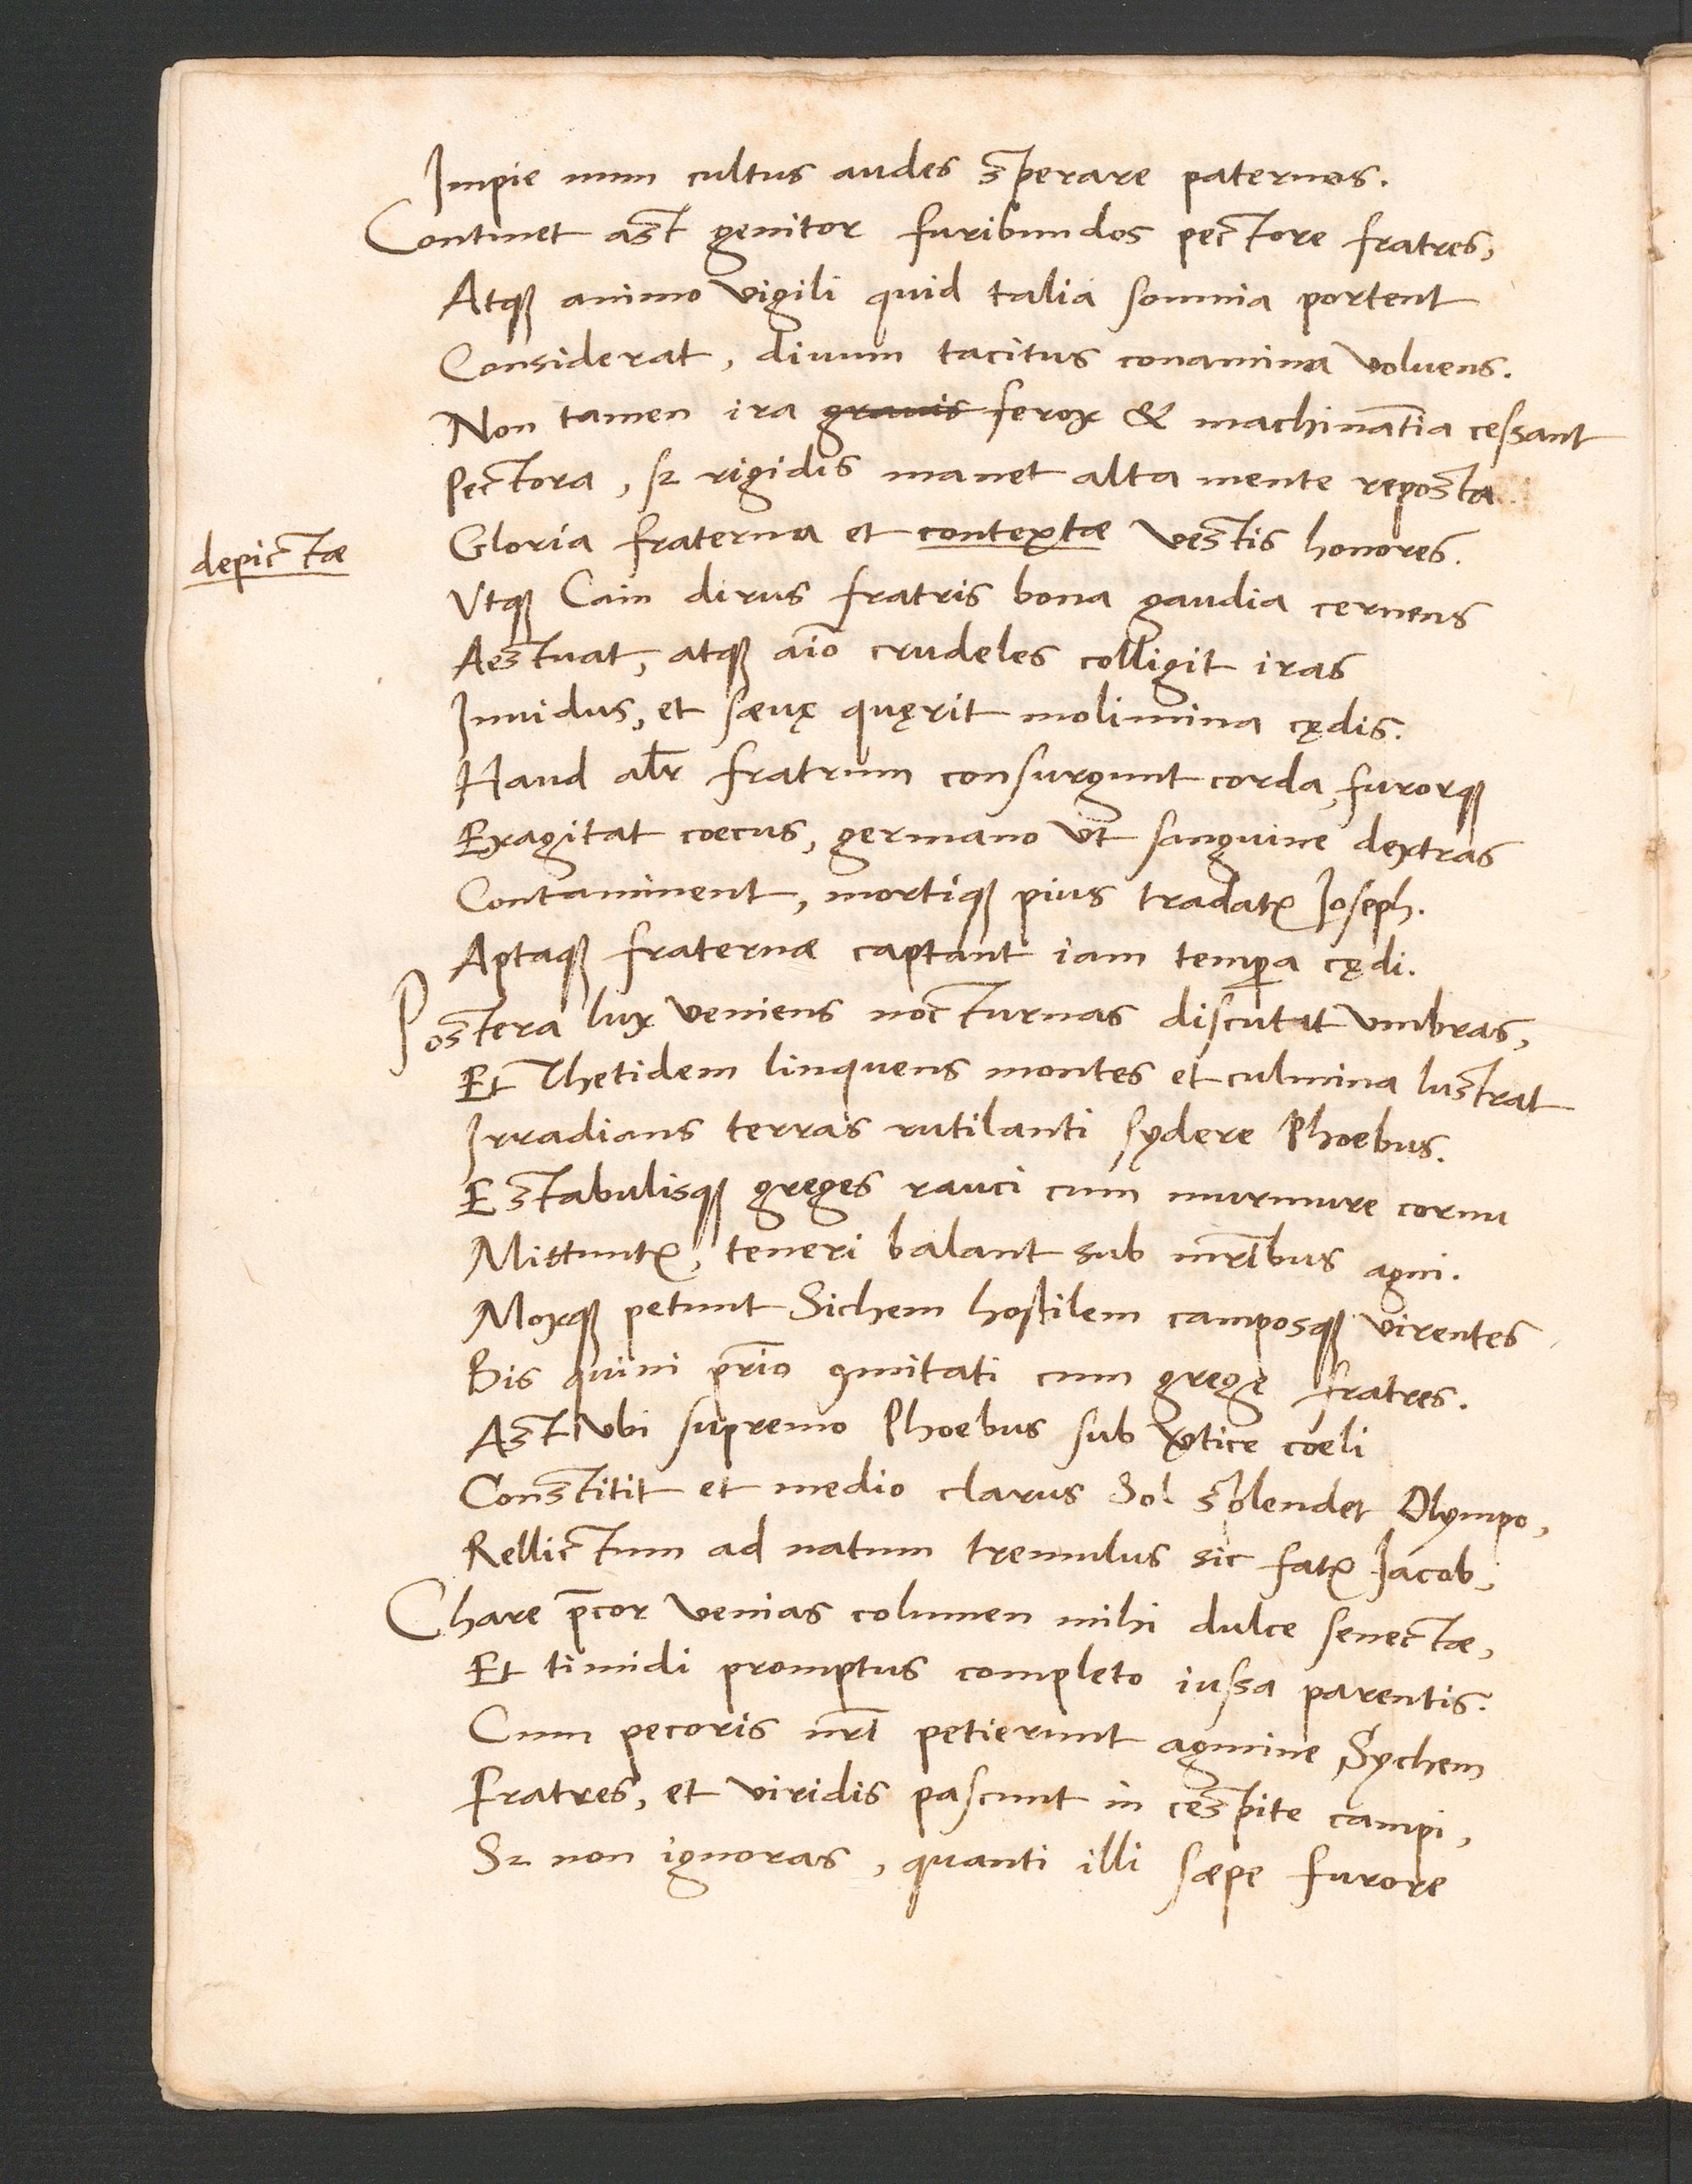 Impie num cultus audes sperare paternos.
Continet ast genitor furibundos pectore fratres,
Atqꝫ animo vigili quid talia somnia portent
Considerat, diuum tacitus conamina voluens.
Non tamen ira grauis ferox & machinãtia cessant
Pectora, sꝫ rigidis manet alta mente reposta
depictæ
Gloria fraterna et contextæ vestis honores.
Vtqꝫ Cain dirus fratris bona gaudia cernens
Aestuat, atqꝫ aĩo crudeles colligit iras
Inuidus, et sæuę quęrit molimina cędis.
Haud alr̃ fratrum consurgunt corda, furorqꝫ
Exagitat coecus, germano vt sanguine dextras
Contaminent, mortiqꝫ pius tradatꝛ Ioseph.
Aptaqꝫ fraternæ captant iam temꝑa cędi.
Postera lux veniens nocturnas discutit vmbras,
Et Thetidem linquens montes et culmina lustrat
Irradians terras rutilanti sydere Phoebus.
E stabulisqꝫ greges rauci cum murmure cornu
Mittuntꝛ, teneri balant sub mr̃ibus agni.
Moxqꝫ petunt Sichem hostilem camposqꝫ virentes
Bis quini pr̃io ꝯmitati cum gregę fratres.
Ast vbi supremo Phoebus sub v̓tice coeli
Constitit et medio clarus Sol splendet Olympo,
Rellictum ad natum tremulus sic fatꝛ Iacob,
Chare p̃cor venias columen mihi dulce senectæ,
Et timidi promptus completo iussa parentis.
Cum pecoris nr̃i petierunt agmine Sychem
Fratres, et viridis pascunt in cespite campi,
Sꝫ non ignoras, quanti illi sæpe furore